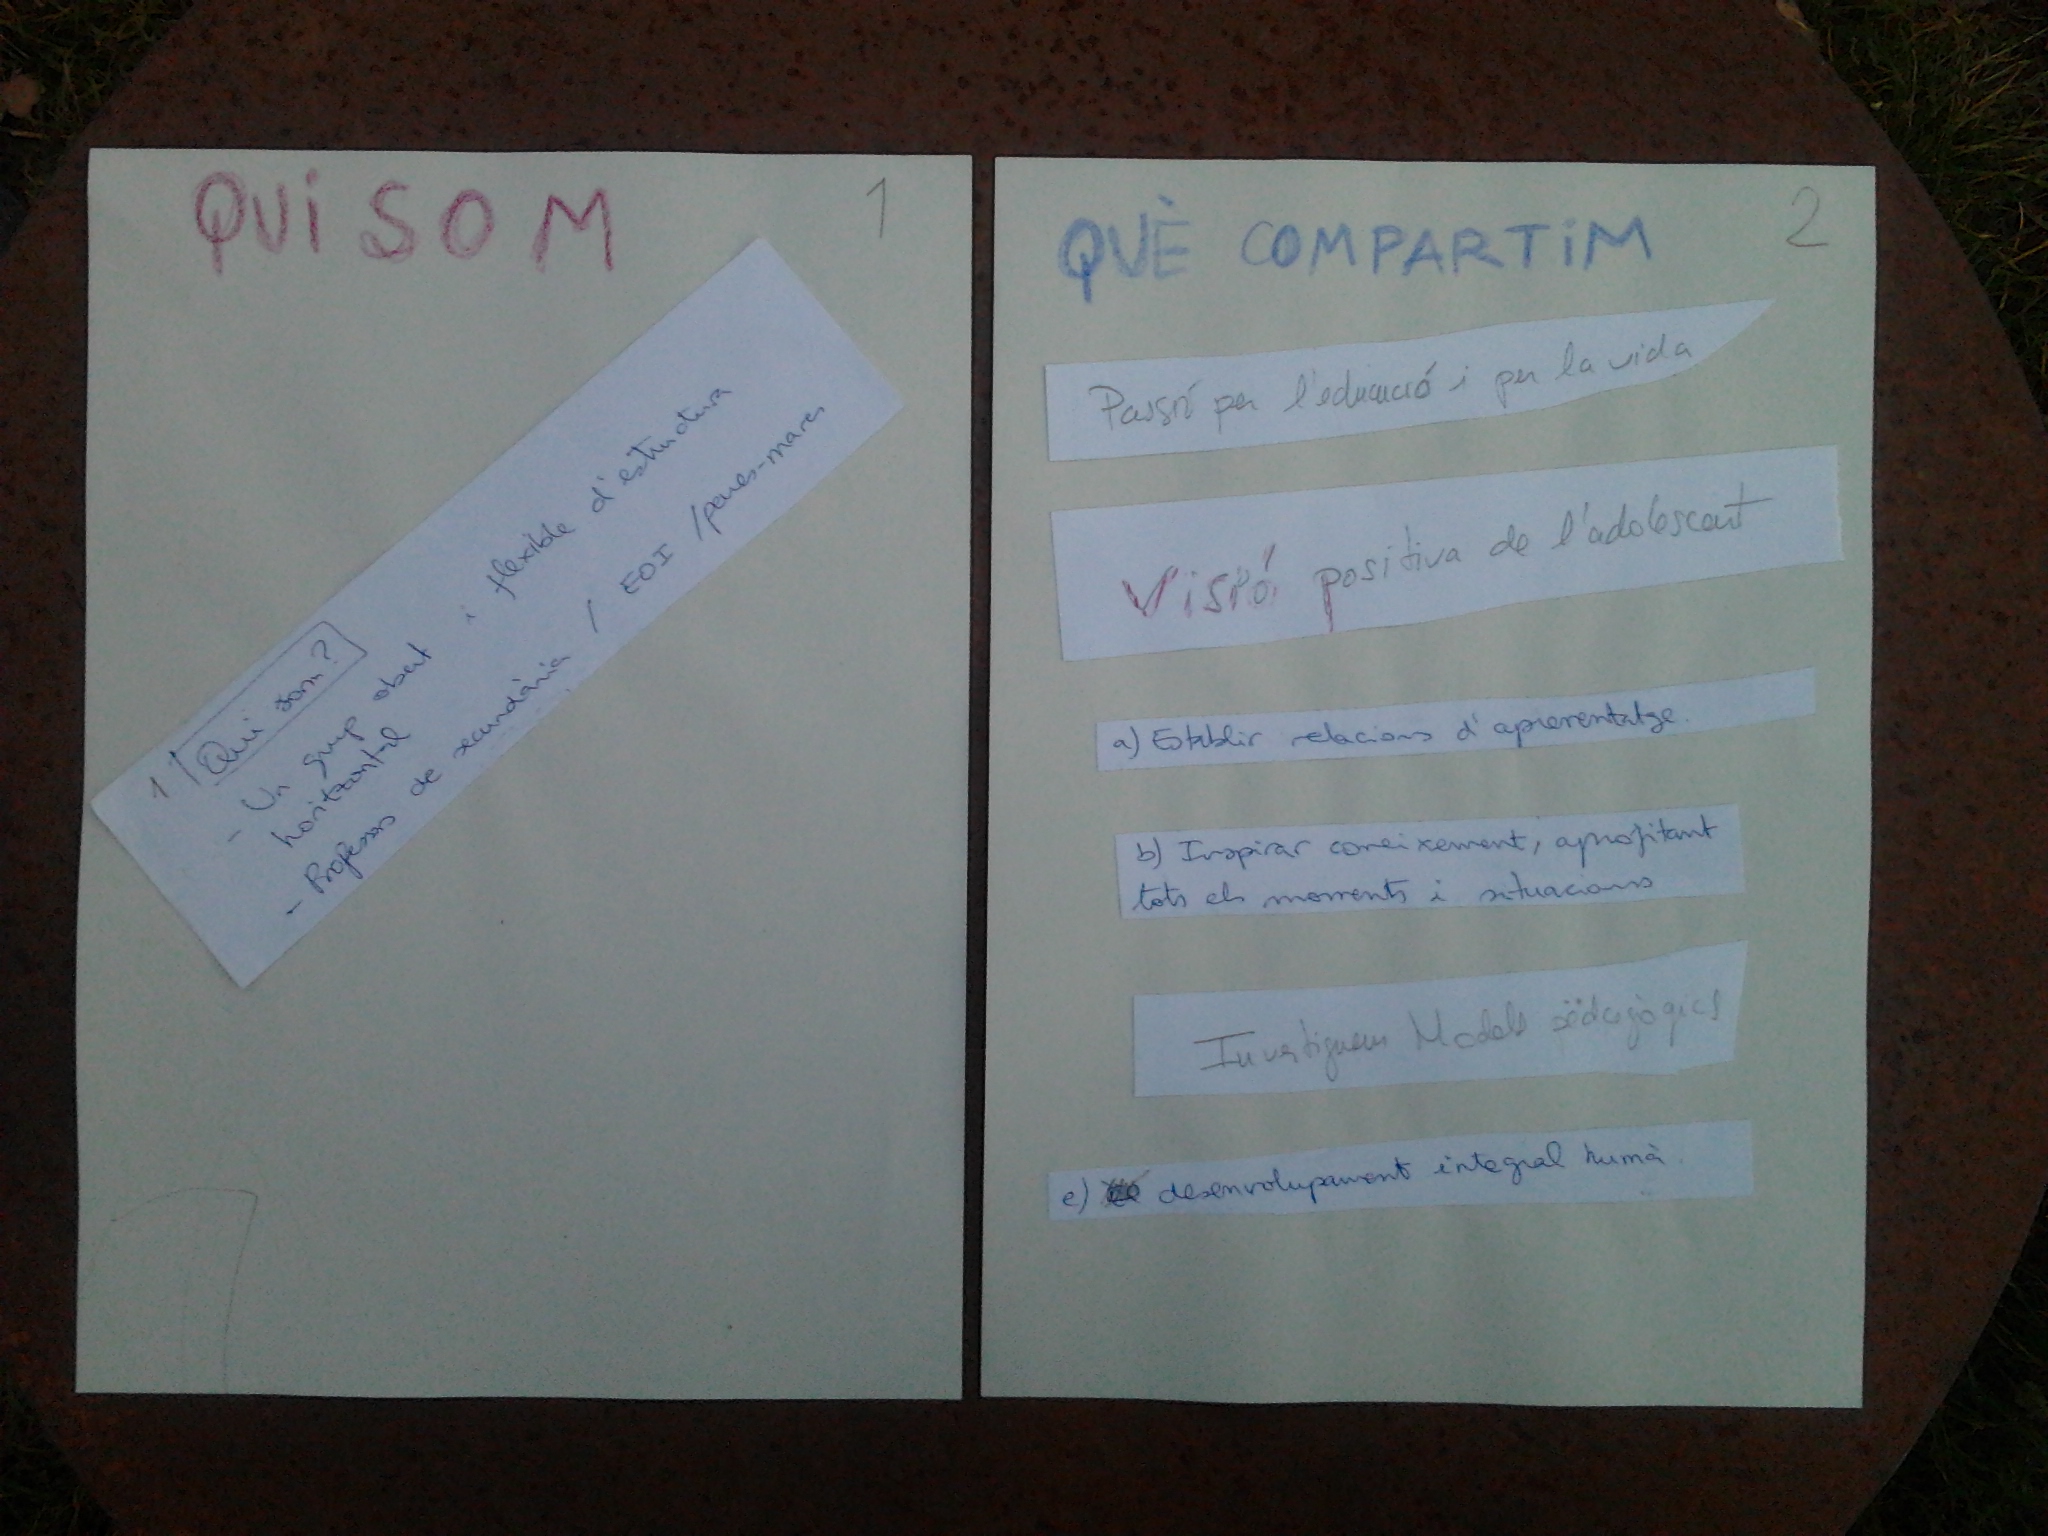 QUi SOM
1
1 Qui som?
- Un grup obert i flexible d'estructura
horitzontal
- Professors de secundària / EOI / pares-mares
QUÈ COMPARTiM
2
Passió per l'educació i per la vida
Visió positiva de l'adolescent
a) Establir relacions d'aprenentatge.
b) Inspirar coneixement, aprofitant
tots els moments i situacions
Investiguem Models pedagògics
e) desenvolupament integral humà.